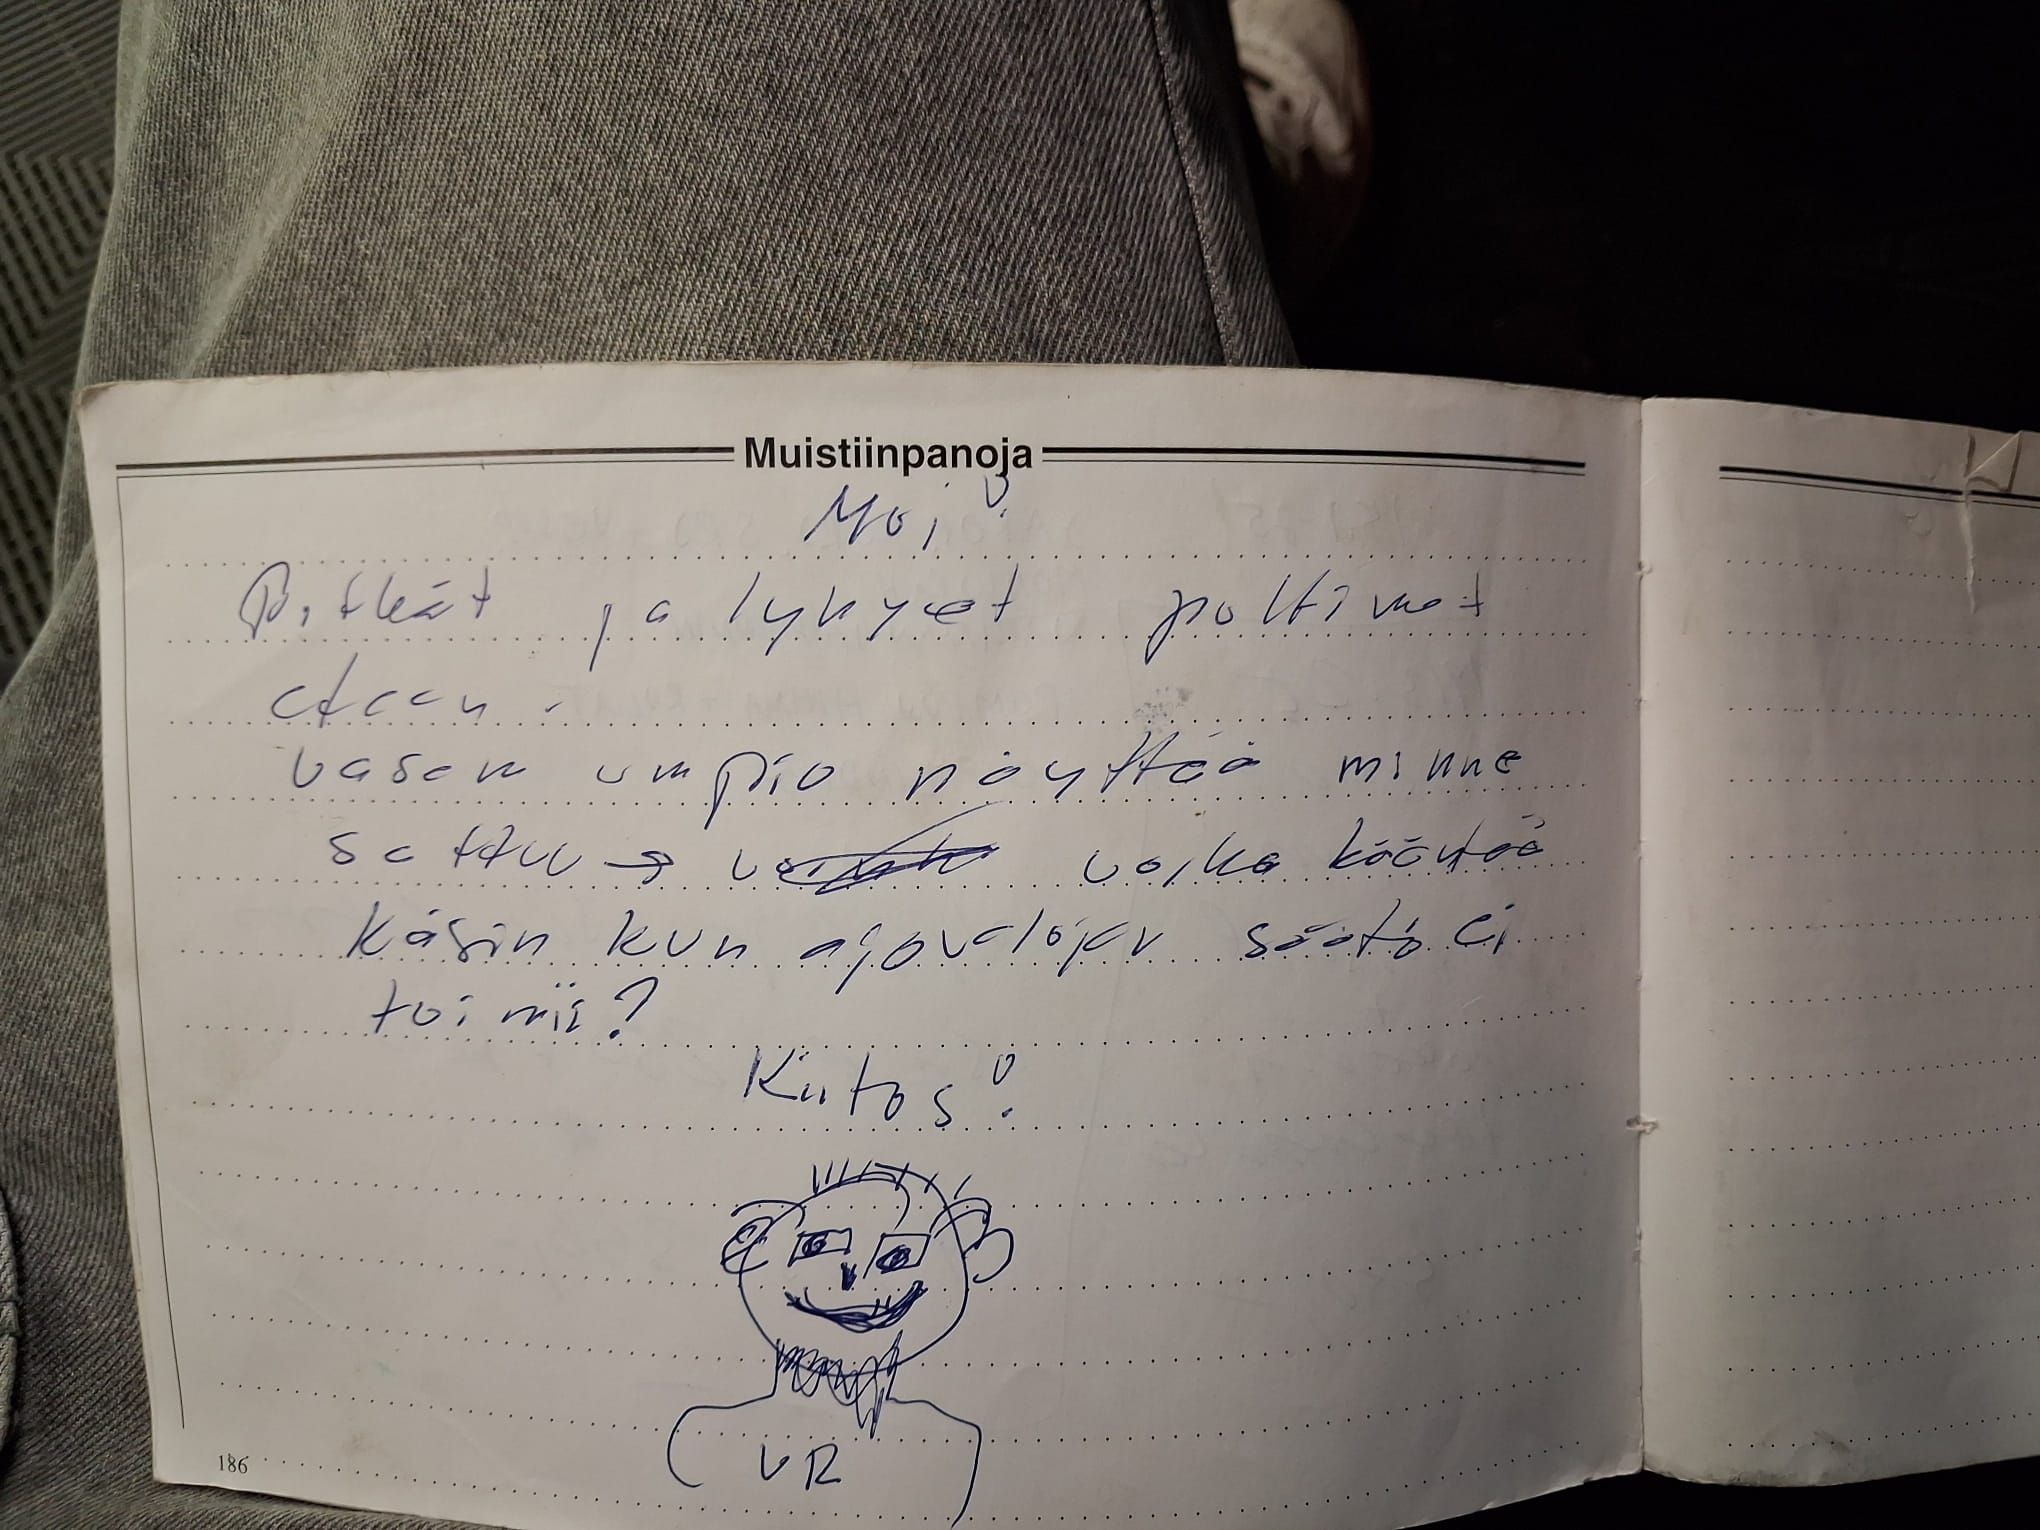 Muistiinpanoja
Moi!
Pitkät ja lyhyet polttimot
eteen.
vasen umpio näyttää minne
sattuu → voiko kääntää
käsin kun ajovalojen säätö ei
toimii?
Kiitos!
VR
186